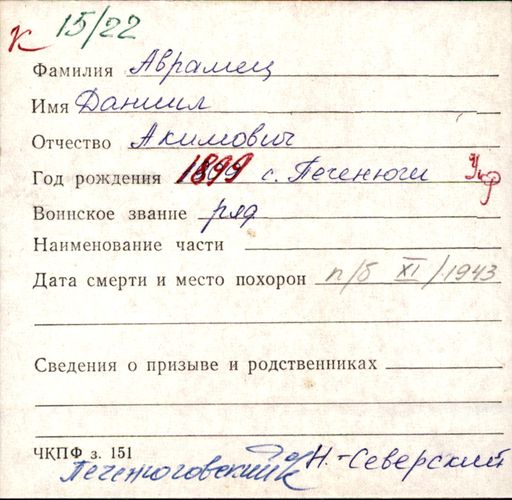 К 15/22
Фамилия Аврамец
Имя Даниил
Отчество Акимович
Год рождения 1899 с. Печенюги
Воинское звание ряд
Наименование части
Дата смерти и место похорон п/б XI/1943
Сведения о призыве и родственниках
ЧКПФ з. 151
Печенюговский Н.-Северский